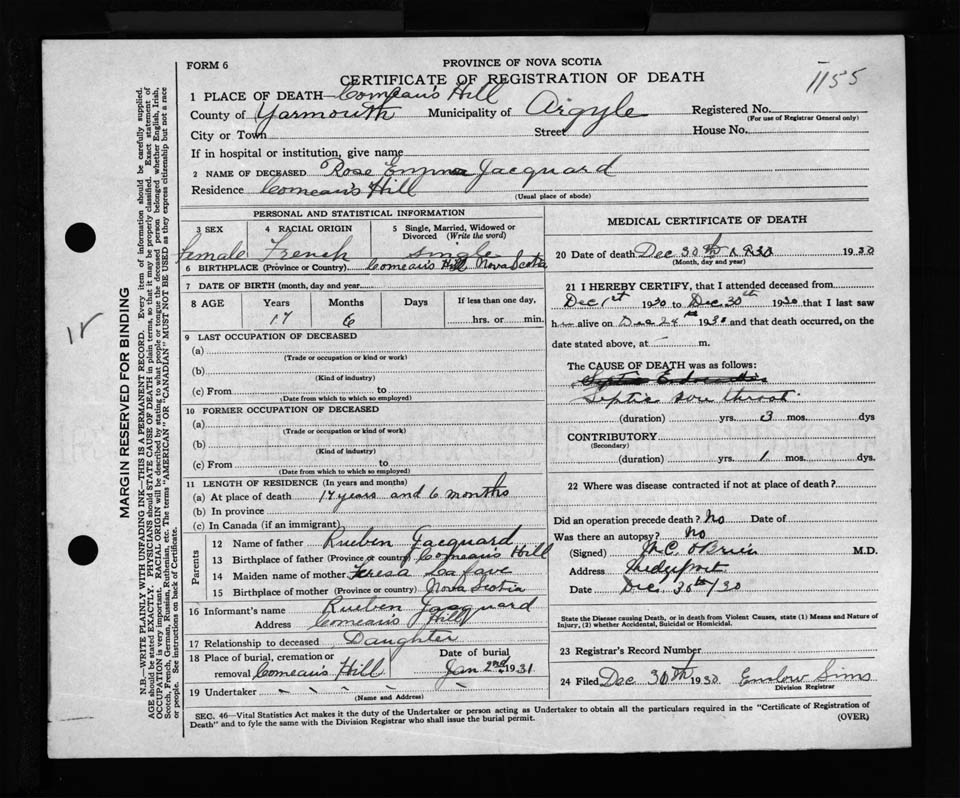 FORM 6
PROVINCE OF NOVA SCOTIA
CERTIFICATE OF REGISTRATION OF DEATH
1155
1 PLACE OF DEATH—Comeau's Hill
County of Yarmouth Municipality of Argyle Registered No.
(For use of Registrar General only)
City or Town Street House No.
If in hospital or institution, give name
2 NAME OF DECEASED Rose Emma Jacquard
Residence Comeau's Hill
(Usual place of abode)
PERSONAL AND STATISTICAL INFORMATION
3 SEX 4 RACIAL ORIGIN 5 Single, Married, Widowed or
Divorced (Write the word)
female French single
6 BIRTHPLACE (Province or Country) Comeau's Hill Nova Scotia
7 DATE OF BIRTH (month, day and year)
8 AGE Years Months Days If less than one day,
17 6 hrs. or min.
9 LAST OCCUPATION OF DECEASED
(a)
(Trade or occupation or kind or work)
(b)
(Kind of industry)
(c) From to
(Date from which to which so employed)
10 FORMER OCCUPATION OF DECEASED
(a)
(Trade or occupation or kind of work)
(b)
(Kind of industry)
(c) From to
(Date from which to which so employed)
11 LENGTH OF RESIDENCE (In years and months)
(a) At place of death 17 years and 6 months
(b) In province
(c) In Canada (if an immigrant)
Parents
12 Name of father Rueben Jacquard
13 Birthplace of father (Province or country) Comeau's Hill
14 Maiden name of mother Teresa Lafave
15 Birthplace of mother (Province or country) Nova Scotia
16 Informant's name Rueben Jacquard
Address Comeau's Hill
17 Relationship to deceased Daughter
18 Place of burial, cremation or Date of burial
removal Comeau's Hill Jan 2nd 1931
19 Undertaker
(Name and Address)
MEDICAL CERTIFICATE OF DEATH
20 Date of death Dec 30th 1930
(Month, day and year)
21 I HEREBY CERTIFY, that I attended deceased from
Dec 1st 1930 to Dec 30th 1930 that I last saw
h alive on Dec 24th 1930 and that death occurred, on the
date stated above, at m.
The CAUSE OF DEATH was as follows:
Septic sore throat.
(duration) yrs. 3 mos. dys
CONTRIBUTORY
(Secondary)
(duration) yrs. 1 mos. dys.
22 Where was disease contracted if not at place of death?
Did an operation precede death? No Date of
Was there an autopsy? No
(Signed) O'Brien M.D.
Address Wedgeport
Date Dec. 30th/30
State the Disease causing Death, or in death from Violent Causes, state (1) Means and Nature of
Injury, (2) whether Accidental, Suicidal or Homicidal.
23 Registrar's Record Number
24 Filed Dec 30th 1930 Enslow Sims
Division Registrar
SEC. 46—Vital Statistics Act makes it the duty of the Undertaker or person acting as Undertaker to obtain all the particulars required in the "Certificate of Registration of
Death" and to fyle the same with the Division Registrar who shall issue the burial permit.
(OVER)
MARGIN RESERVED FOR BINDING
N.B.—WRITE PLAINLY WITH UNFADING INK—THIS IS A PERMANENT RECORD. Every item of information should be carefully supplied.
AGE should be stated EXACTLY. PHYSICIANS should STATE CAUSE OF DEATH in plain terms, so that it may be properly classified. Exact statement of
OCCUPATION is very important. RACIAL ORIGIN will be described by stating to what people or tongue the deceased person belonged whether English, Irish,
Scotch, French, German, Russian, Ruthenian, etc. The terms "AMERICAN" or "CANADIAN" MUST NOT BE USED as they express citizenship but not a race
or people. See instructions on back of Certificate.